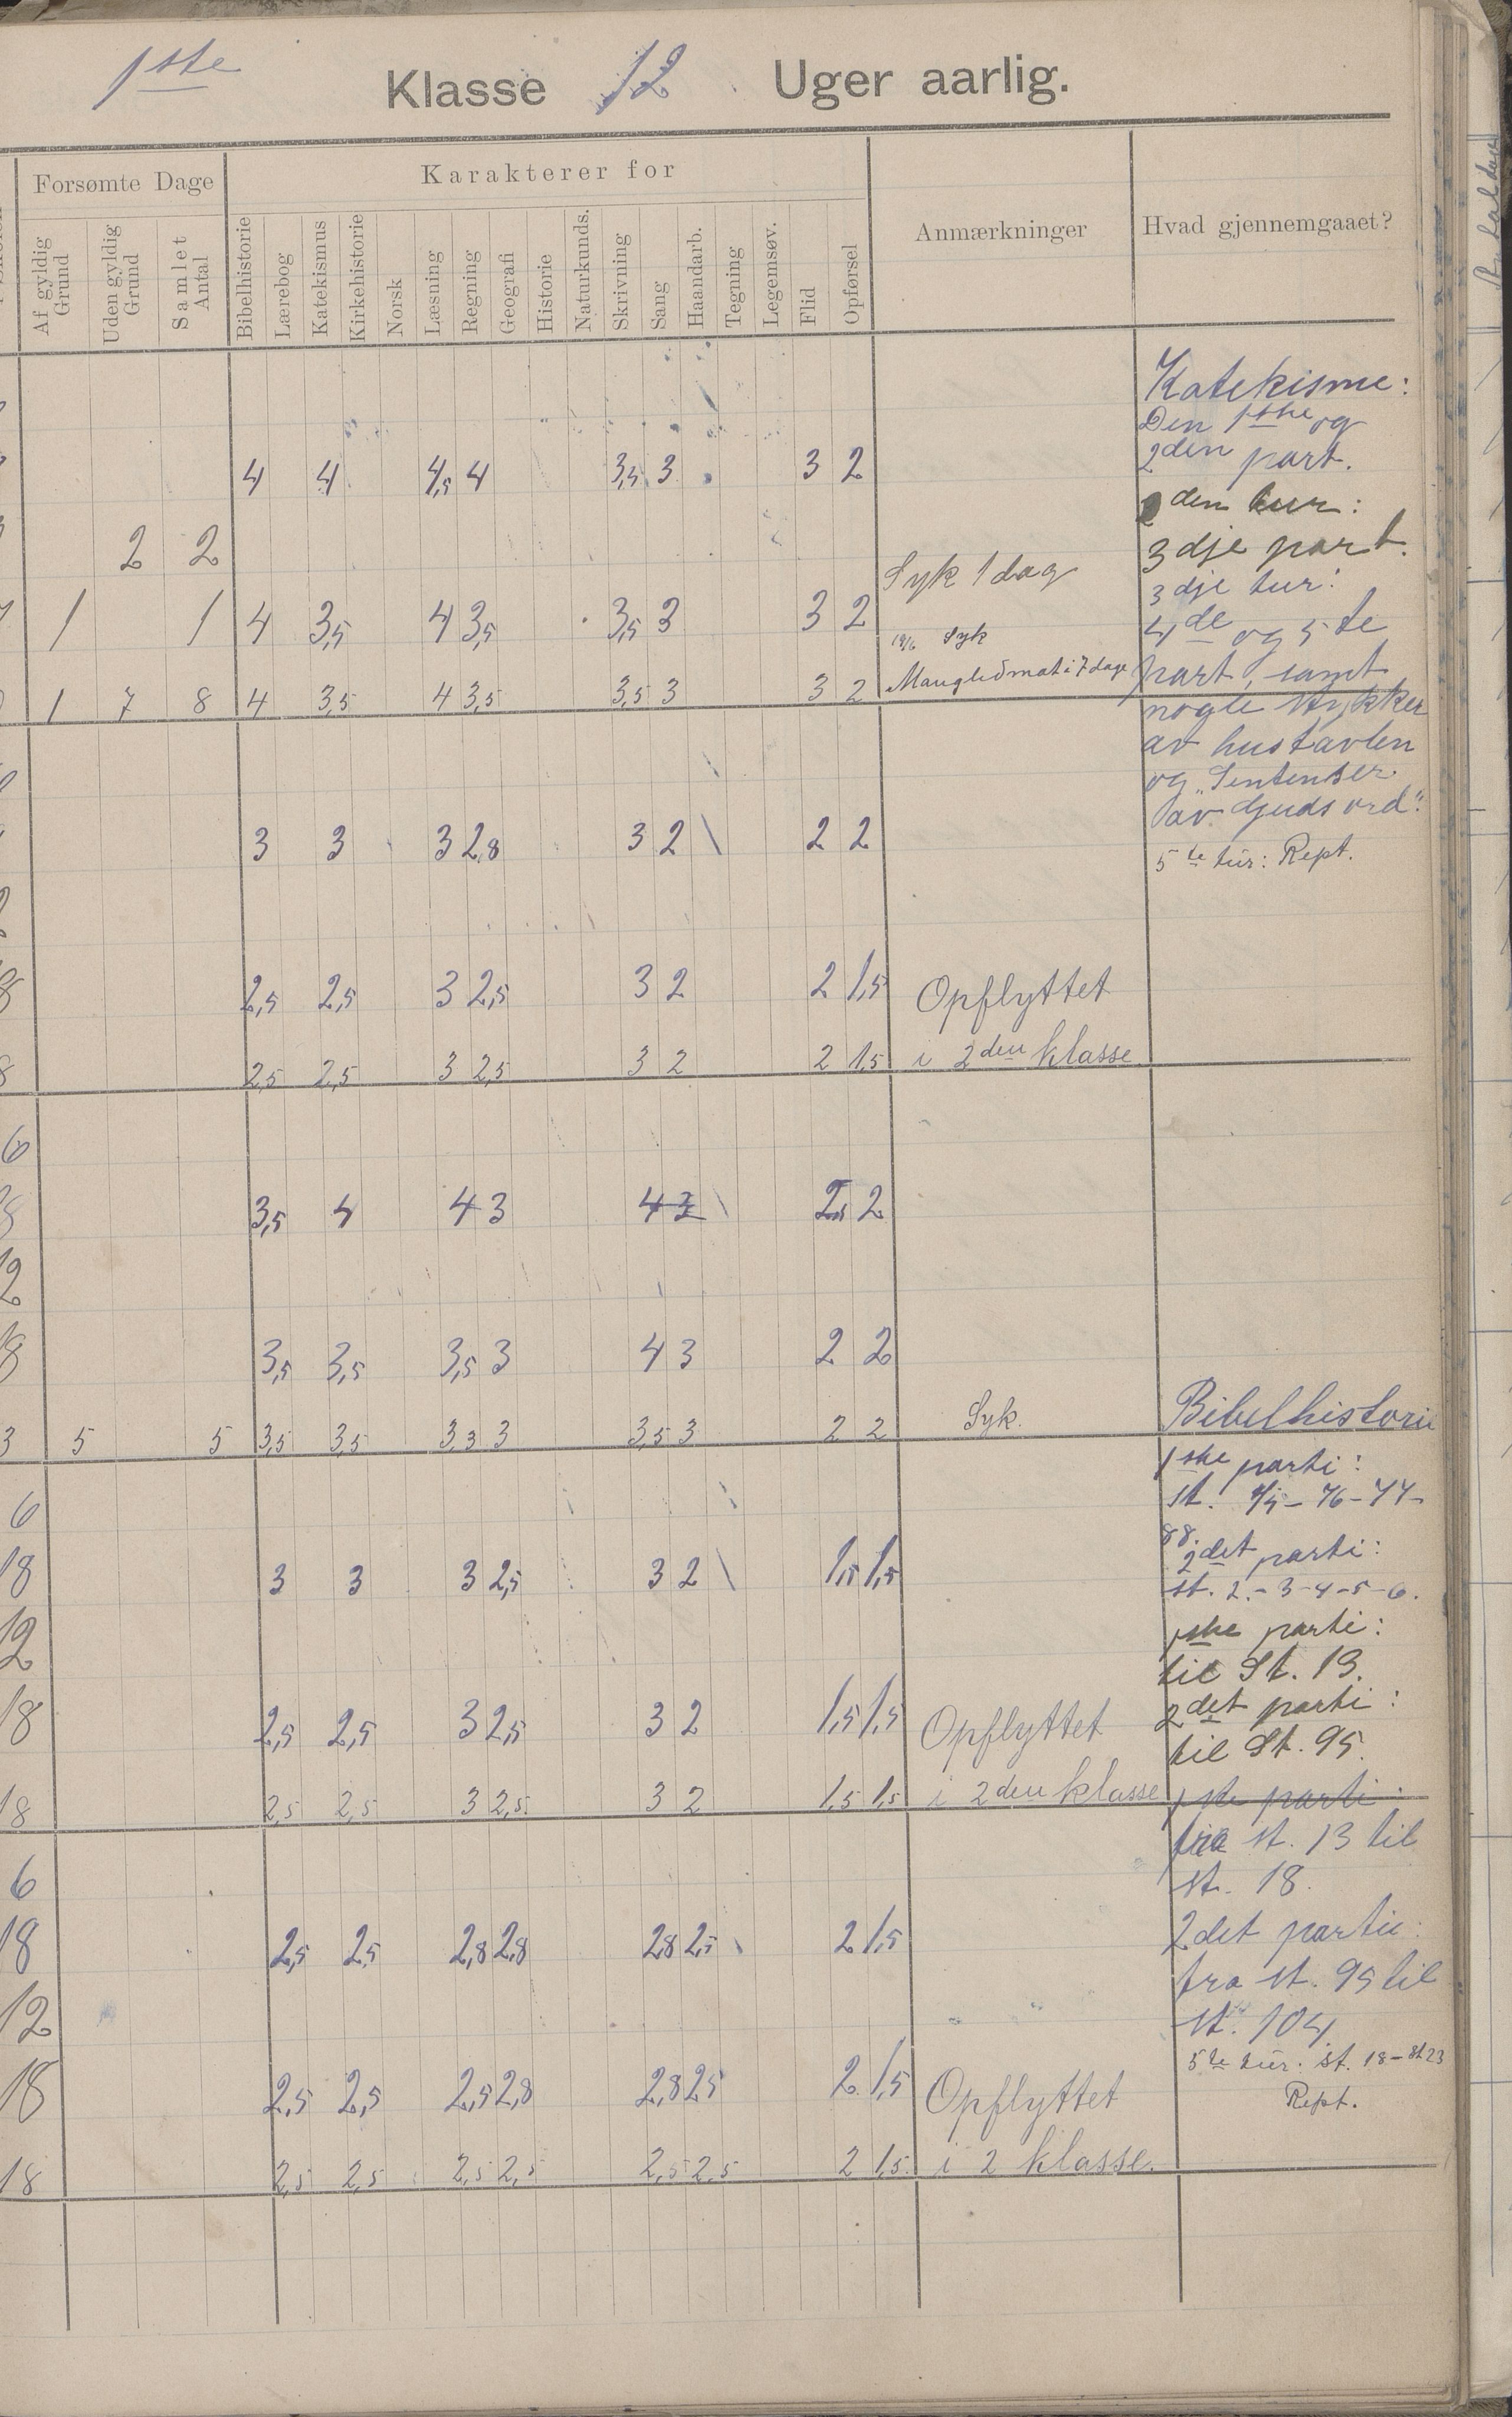 1ste Klasse 12 Uger aarlig.
Forsømte Dage
Karakterer for
Anmærkninger
Hvad gjennemgaaet?
Af gyldig Grund
Uden gyldig Grund
Samlet Antal
Bibelhistorie
Lærebog
Katekismus
Kirkehistorie
Norsk
Læsning
Regning
Geografi
Historie
Naturkunds.
Skrivning
Sang
Haandarb.
Tegning
Legemsøv.
Flid
Opførsel
4 4 4,5 4 3,5 3 3 2
2 2
Syk 1 dag
1 1 4 3,5 4 3,5 3,5 3 3 2
Syk
1 7 8 4 3,5 4 3,5 3,5 3 3 2 Mangled mat i 7 dage
3 3 3 2,8 3 2 2 2
2,5 2,5 3 2,5 3 2 2 1,5 Opflyttet
2,5 2,5 3 2,5 3 2 2 1,5 i 2den klasse
6
3,5 4 4 3 4 3 2
12
18 3,5 3,5 3,5 3 4 3 2 2
3 5 5 3,5 3,5 3,3 3 3,5 3 2 2 Syk.
6
18 3 3 3 2,5 3 2 1,5 1,5
12
18 2,5 2,5 3 2,5 3 2 1,5 1,5 Opflyttet
18 2,5 2,5 3 2,5 3 2 1,5 1,5 i 2den klasse
6
18 2,5 2,5 2,8 2,8 2,8 2,5 2 1,5
12
18 2,5 2,5 2,5 2,8 2,8 2,5 2 1,5 Opflyttet
18 2,5 2,5 2,5 2,5 2,5 2,5 2 1,5 i 2 klasse.
Katekisme:
Den 1ste og
2den part.
2den tur:
3dje part.
3dje tur:
4de og 5te
part, samt
nogle stykker
av hustavlen
og "Sentenser
av Guds ord".
5te tur: Rept.
Bibelhistorie
1ste parti:
st. 76-77-
88.
2det parti:
st. 2.-3-4-5-6.
1ste parti:
til St. 13.
2det parti:
til St. 95.
1ste parti:
fra st. 13 til
st. 18.
2det parti:
fra st. 95 til
st. 104
5te tur: st. 18-st 23
Rept.